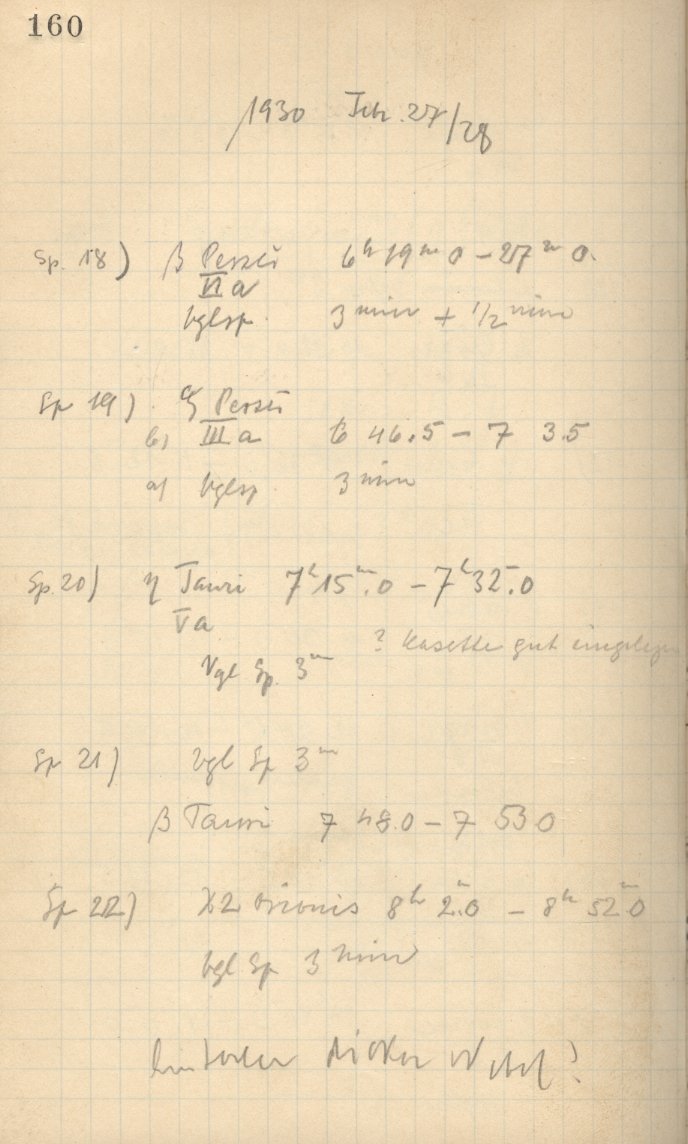 160
1930 Feb. 27/28
Sp. 18) β Persei 6h 19m 0 - 27m 0.
VI a
Vglsp. 3 min + 1/2 min
Sp 19) ξ Persei
b) III a 6 46.5 - 7 3.5
a) Vglsp. 3 min
Sp. 20) η Tauri 7h 15m.0 - 7h 32m.0
V a
? Kasette gut eingelegt
Vgl Sp. 3m
Sp 21) Vgl Sp 3m
β Tauri 7 48.0 - 7 53 0
Sp 22) χ2 Orionis 8h 2m.0 - 8h 52m.0
Vgl Sp 3 min
dicker ?